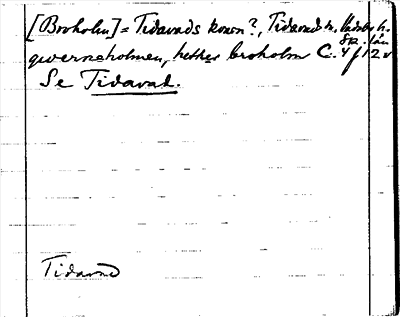 [Broholm] = Tidavads kvarn?, Tidavads sn, Vadsbo h.
Sk. län
qwerneholmen, hether broholm C. 4 f 12 v
Se Tidavad.
Tidavad